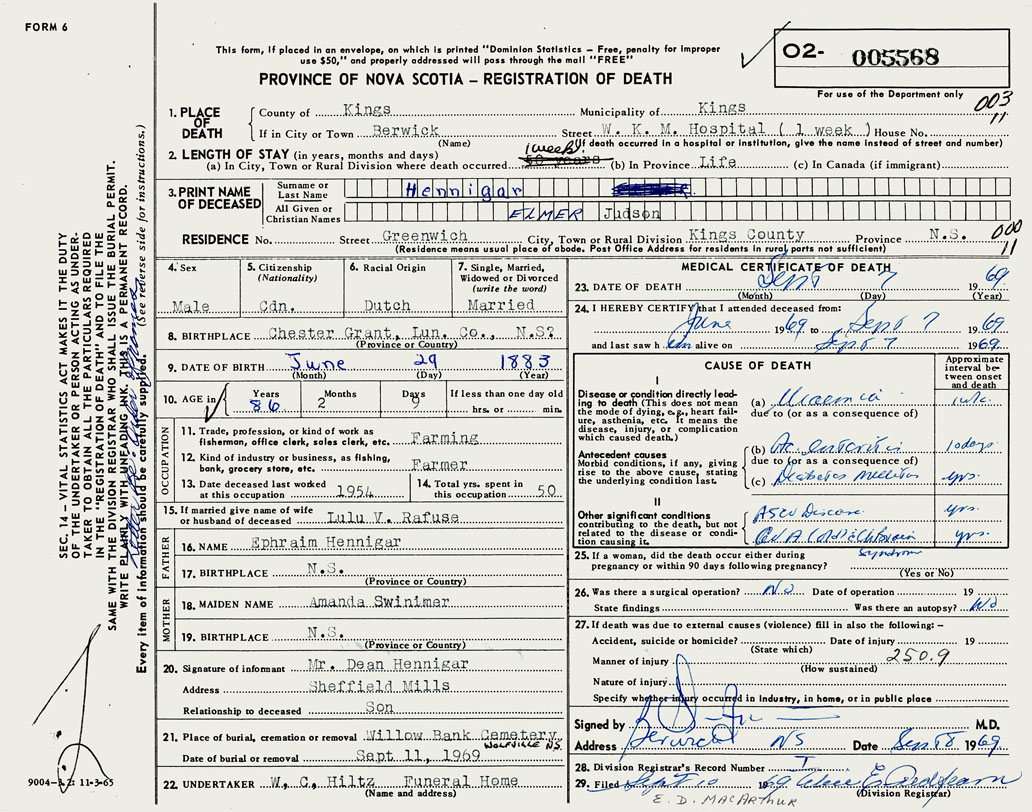 FORM 6
This form, if placed in an envelope, on which is printed "Dominion Statistics – Free, penalty for improper
use $50," and properly addressed will pass through the mail "FREE"
PROVINCE OF NOVA SCOTIA – REGISTRATION OF DEATH
O2- 005568
For use of the Department only
003
11
1. PLACE OF DEATH
County of Kings Municipality of Kings
If in City or Town Berwick Street W. K. M. Hospital ( 1 week ) House No.
(Name) (If death occurred in a hospital or institution, give the name instead of street and number)
2. LENGTH OF STAY (in years, months and days)
(a) In City, Town or Rural Division where death occurred 1 week. (b) In Province Life (c) In Canada (if immigrant)
3. PRINT NAME OF DECEASED
Surname or Last Name Hennigar
All Given or Christian Names ELMER Judson
RESIDENCE No. Street Greenwich City, Town or Rural Division Kings County Province N.S.
(Residence means usual place of abode. Post Office Address for residents in rural parts not sufficient)
000
11
4. Sex
Male
5. Citizenship (Nationality)
Cdn.
6. Racial Origin
Dutch
7. Single, Married, Widowed or Divorced (write the word)
Married
8. BIRTHPLACE Chester Grant, Lun. Co., N.S?
(Province or Country)
9. DATE OF BIRTH June 29 1883
(Month) (Day) (Year)
10. AGE in Years 86 Months 2 Days 9 If less than one day old hrs. or min.
OCCUPATION
11. Trade, profession, or kind of work as fisherman, office clerk, sales clerk, etc. Farming
12. Kind of industry or business, as fishing, bank, grocery store, etc. Farmer
13. Date deceased last worked at this occupation 1954
14. Total yrs. spent in this occupation 50
15. If married give name of wife or husband of deceased Lulu V. Rafuse
FATHER
16. NAME Ephraim Hennigar
17. BIRTHPLACE N.S.
(Province or Country)
MOTHER
18. MAIDEN NAME Amanda Swinimer
19. BIRTHPLACE N.S.
(Province or Country)
20. Signature of informant Mr. Dean Hennigar
Address Sheffield Mills
Relationship to deceased Son
21. Place of burial, cremation or removal Willow Bank Cemetery
WOLFVILLE N.S.
Date of burial or removal Sept 11, 1969
22. UNDERTAKER W. C. Hiltz Funeral Home
(Name and address)
MEDICAL CERTIFICATE OF DEATH
23. DATE OF DEATH Sept 7 1969
(Month) (Day) (Year)
24. I HEREBY CERTIFY that I attended deceased from:
June 1969 to Sept 7 1969
and last saw him alive on Sept 7 1969.
CAUSE OF DEATH
Approximate interval between onset and death
I
Disease or condition directly leading to death (This does not mean the mode of dying, e.g., heart failure, asthenia, etc. It means the disease, injury, or complication which caused death.)
(a) Uraemia
due to (or as a consequence of)
Antecedent causes
Morbid conditions, if any, giving rise to the above cause, stating the underlying condition last.
(b) Ac. enteritis 10 days
due to (or as a consequence of)
(c) Diabetes Mellitus yrs.
II
Other significant conditions contributing to the death, but not related to the disease or condition causing it.
ASCV Disease yrs.
yrs.
Syndrome
25. If a woman, did the death occur either during pregnancy or within 90 days following pregnancy?
(Yes or No)
26. Was there a surgical operation? No Date of operation 19
State findings Was there an autopsy? No
27. If death was due to external causes (violence) fill in also the following: –
Accident, suicide or homicide? Date of injury 19
(State which)
Manner of injury 250.9
(How sustained)
Nature of injury
Specify whether injury occurred in industry, in home, or in public place
Signed by M.D.
Address Berwick NS Date Sept 8 1969.
28. Division Registrar's Record Number
29. Filed Sept 10 1969
(Division Registrar)
E. D. MACARTHUR
SEC. 14 – VITAL STATISTICS ACT MAKES IT THE DUTY
OF THE UNDERTAKER OR PERSON ACTING AS UNDER-
TAKER TO OBTAIN ALL THE PARTICULARS REQUIRED
IN THE "REGISTRATION OF DEATH" AND TO FILE THE
SAME WITH THE DIVISION REGISTRAR WHO SHALL ISSUE THE BURIAL PERMIT.
WRITE PLAINLY WITH UNFADING INK. THIS IS A PERMANENT RECORD.
Every item of information should be carefully supplied. (See reverse side for instructions.)
9004-3.2: 11-3-65